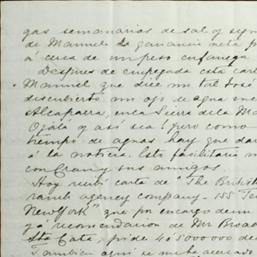 gas semanarias de sal y
de Manuel la ganancia
á cerca de un peso en fanega
Despues de empezada esta car
Manuel que dice un tal José
descubierto un ojo de agua en
Alcaparra, en la Sierra de la M
Ojala y asi sea! Pero como
tiempo de aguas hay que da
á la noticia. Esto facilitaria
con Crean y sus amigos
Hoy recibí carta de "The British
ranch agency company - 155
New York" que por encargo de un
y a recomendacion de Mr
Sta Cata, pide 45000000 de
Tambien aqui se me ha acercado